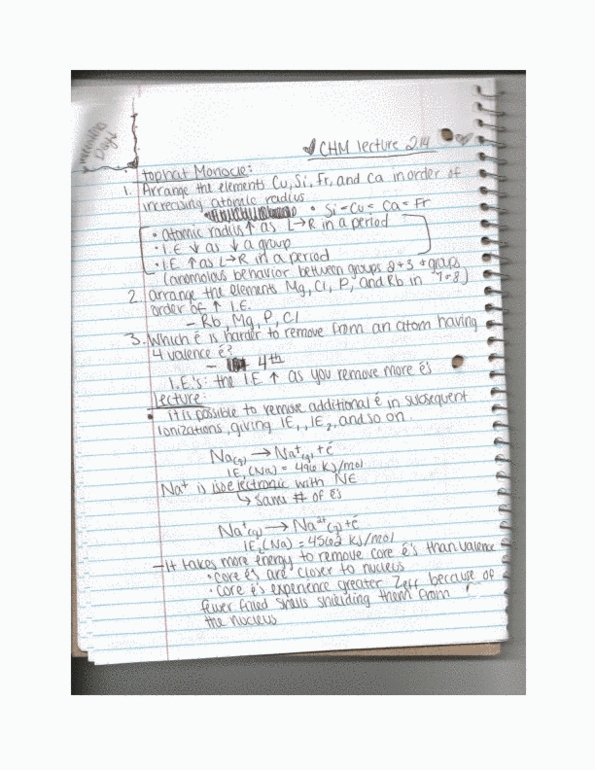 CHM lecture 2.14
Days
Tophat Monocle:
1. Arrange the elements Cu, Si, Fr, and Ca in order of
increasing atomic radius
• Si = Cu = Ca = Fr
• atomic radius ↑ as L→R in a period
• I.E ↓ as ↓ a group
• I.E ↑ as L→R in a period
(anomolous behavior between groups 2+3 + groups
7+8)
2. arrange the elements Mg, Cl, P, and Rb in
order of ↑ I.E.
- Rb, Mg, P, Cl
3. Which é is harder to remove from an atom having
4 valence é?
- 4th
I.E's: the IE ↑ as you remove more é's
lecture:
• it is possible to remove additional é in subsequent
ionizations, giving IE₁, IE₂, and so on.
Na(g) → Na⁺(g) + é
IE₁ (Na) = 496 kJ/mol
Na⁺ is isoelectronic with NE
↳ same # of é's
Na⁺(g) → Na²⁺(g) + é
IE₂(Na) = 4562 kJ/mol
- It takes more energy to remove core é's than valence
• core é's are closer to nucleus
• core é's experience greater Zeff because of
fewer filled shells shielding them from
the nucleus